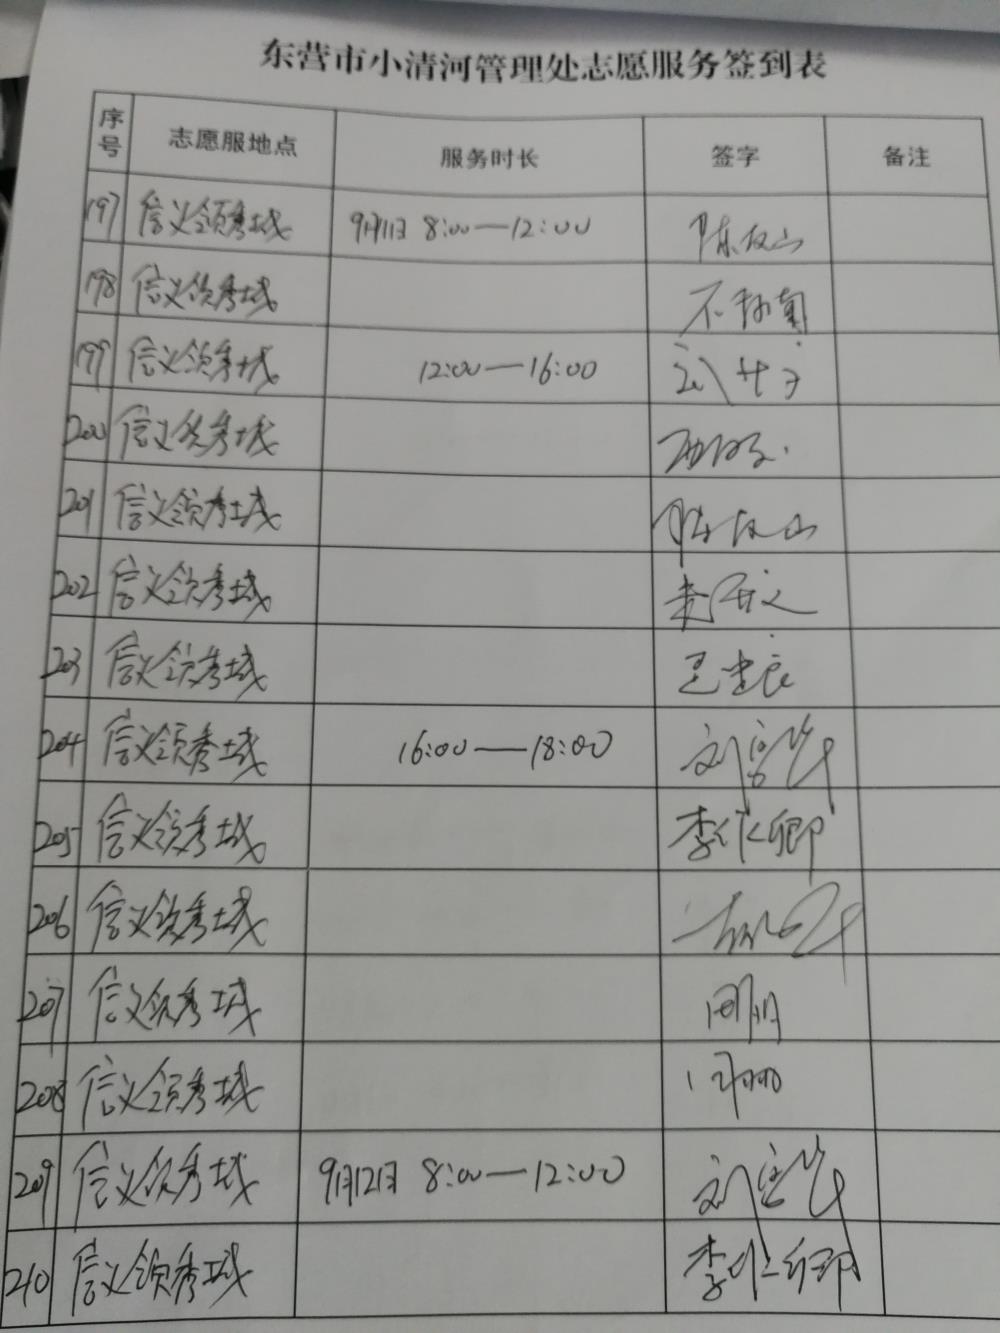 东营市小清河管理处志愿服务签到表
序号 志愿服地点 服务时长 签字 备注
197 信义领秀城 9月11日 8:00—12:00
198 信义领秀城
199 信义领秀城 12:00—16:00
200 信义领秀城
201 信义领秀城
202 信义领秀城
203 信义领秀城 王建良
204 信义领秀城 16:00—18:00
205 信义领秀城 李仁卿
206 信义领秀城
207 信义领秀城
208 信义领秀城
209 信义领秀城 9月12日 8:00—12:00
210 信义领秀城 李仁卿